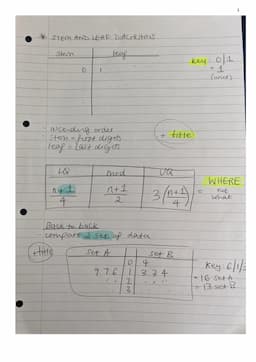 1
* STEM AND LEAF DIAGRAMS
Stem | leaf
0 | 1
Key: 0|1
= 1
(units)
Ascending order
Stem = first digits
leaf = last digits
+ title
LQ | med | UQ
n+1/4 | n+1/2 | 3(n+1/4)
WHERE
not
what
Back to back
compare 2 sets of data
+ title
Set A | Set B
0 | 4
9 7 6 | 1 | 3 3 4
2
3
Key: 6/1/3
= 16 set A
= 13 set B